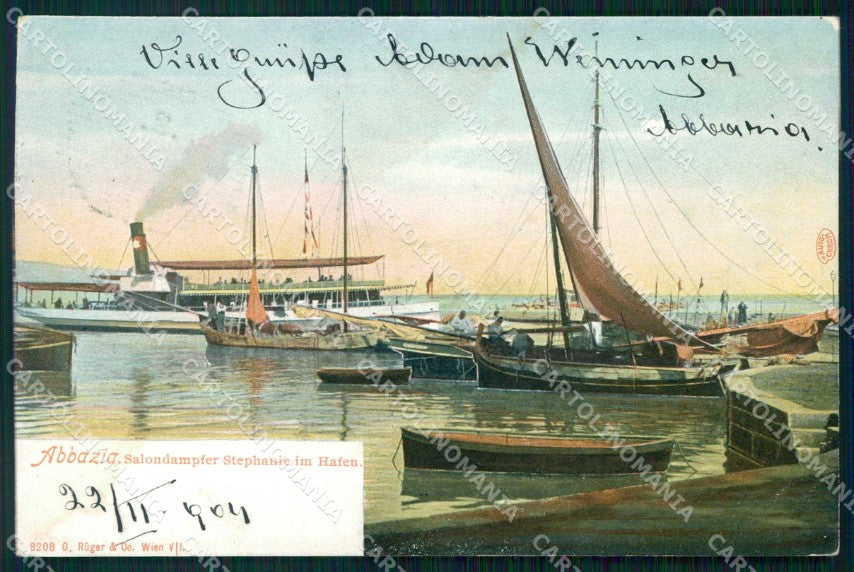 Viele Grüße Adam Weininger
Abbazia.
AUTO-CHROM
Abbazia. Salondampfer Stephanie im Hafen.
22/II 904
8208 G. Rüger & Co. Wien
CARTOLINOMANIA